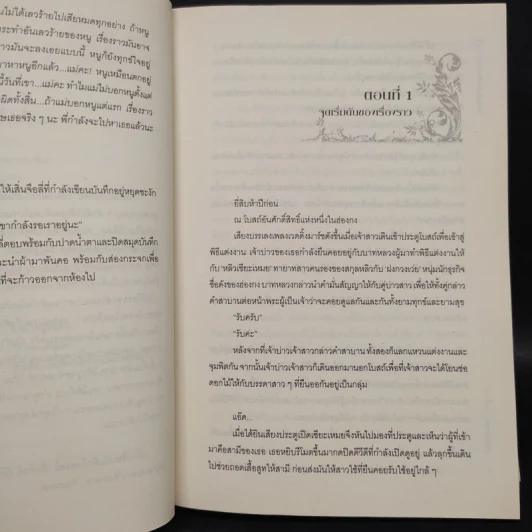 นไม่ได้เลวร้ายไปเสียหมดทุกอย่าง ถ้าหนู
ระทำอันเลวร้ายของหนู เรื่องราวมันอาจ
ราวมันจะลงเอยแบบนี้ หนูก็ยังทุกข์ใจอยู่
าหาหนูอีกแล้ว...แม่คะ! หนูเหมือนตกอยู่
นี้วันที่เขา...แม่คะ ทำไมแม่ไม่บอกหนูตั้งแต่
ผิดทั้งสิ้น...ถ้าแม่บอกหนูแต่แรก เรื่องราว
ษเธอจริง ๆ นะ พี่กำลังจะไปหาเธอแล้วนะ
ให้เสิ่นจือลี่ที่กำลังเขียนบันทึกอยู่หยุดชะงัก
ขากำลังรอเราอยู่นะ"
ลี่ตอบพร้อมกับปาดน้ำตาและปิดสมุดบันทึก
ะนำผ้ามาพันคอ พร้อมกับส่องกระจกเพื่อ
ที่จะก้าวออกจากห้องไป
ตอนที่ 1
จุดเริ่มต้นของเรื่องราว
ยี่สิบห้าปีก่อน
ณ โบสถ์อันศักดิ์สิทธิ์แห่งหนึ่งในฮ่องกง
เสียงบรรเลงเพลงเวดดิ้งมาร์ชดังขึ้นเมื่อเจ้าสาวเดินเข้าประตูโบสถ์เพื่อเข้าสู่
พิธีแต่งงาน เจ้าบ่าวของเธอกำลังยืนคอยอยู่กับบาทหลวงผู้มาทำพิธีแต่งงานให้
กับ 'หลิวเซียะเหมย' ทายาทสาวคนรองของสกุลหลิวกับ 'ฝงกวงเว่ย' หนุ่มนักธุรกิจ
ชื่อดังของฮ่องกง บาทหลวงกล่าวนำคำมั่นสัญญาให้กับคู่บ่าวสาว เพื่อให้ทั้งคู่กล่าว
คำสาบานต่อหน้าพระผู้เป็นเจ้าว่าจะคอยดูแลกันและกันทั้งยามทุกข์และยามสุข
"รับครับ"
"รับค่ะ"
หลังจากที่เจ้าบ่าวเจ้าสาวกล่าวคำสาบาน ทั้งสองก็แลกแหวนแต่งงานและ
จุมพิตกัน จากนั้นเจ้าบ่าวเจ้าสาวก็เดินออกมานอกโบสถ์เพื่อที่เจ้าสาวจะได้โยนช่อ
ดอกไม้ให้กับบรรดาสาว ๆ ที่ยืนออกันอยู่เป็นกลุ่ม
แอ๊ด...
เมื่อได้ยินเสียงประตูเปิดเซียะเหมยจึงหันไปมองที่ประตูและเห็นว่าผู้ที่เข้า
มาคือสามีของเธอ เธอหยิบรีโมตขึ้นมากดปิดดีวีดีที่กำลังเปิดดูอยู่ แล้วลุกขึ้นเดิน
ไปช่วยถอดเสื้อสูทให้สามี ก่อนส่งมันให้สาวใช้ที่ยืนคอยรับใช้อยู่ใกล้ ๆ